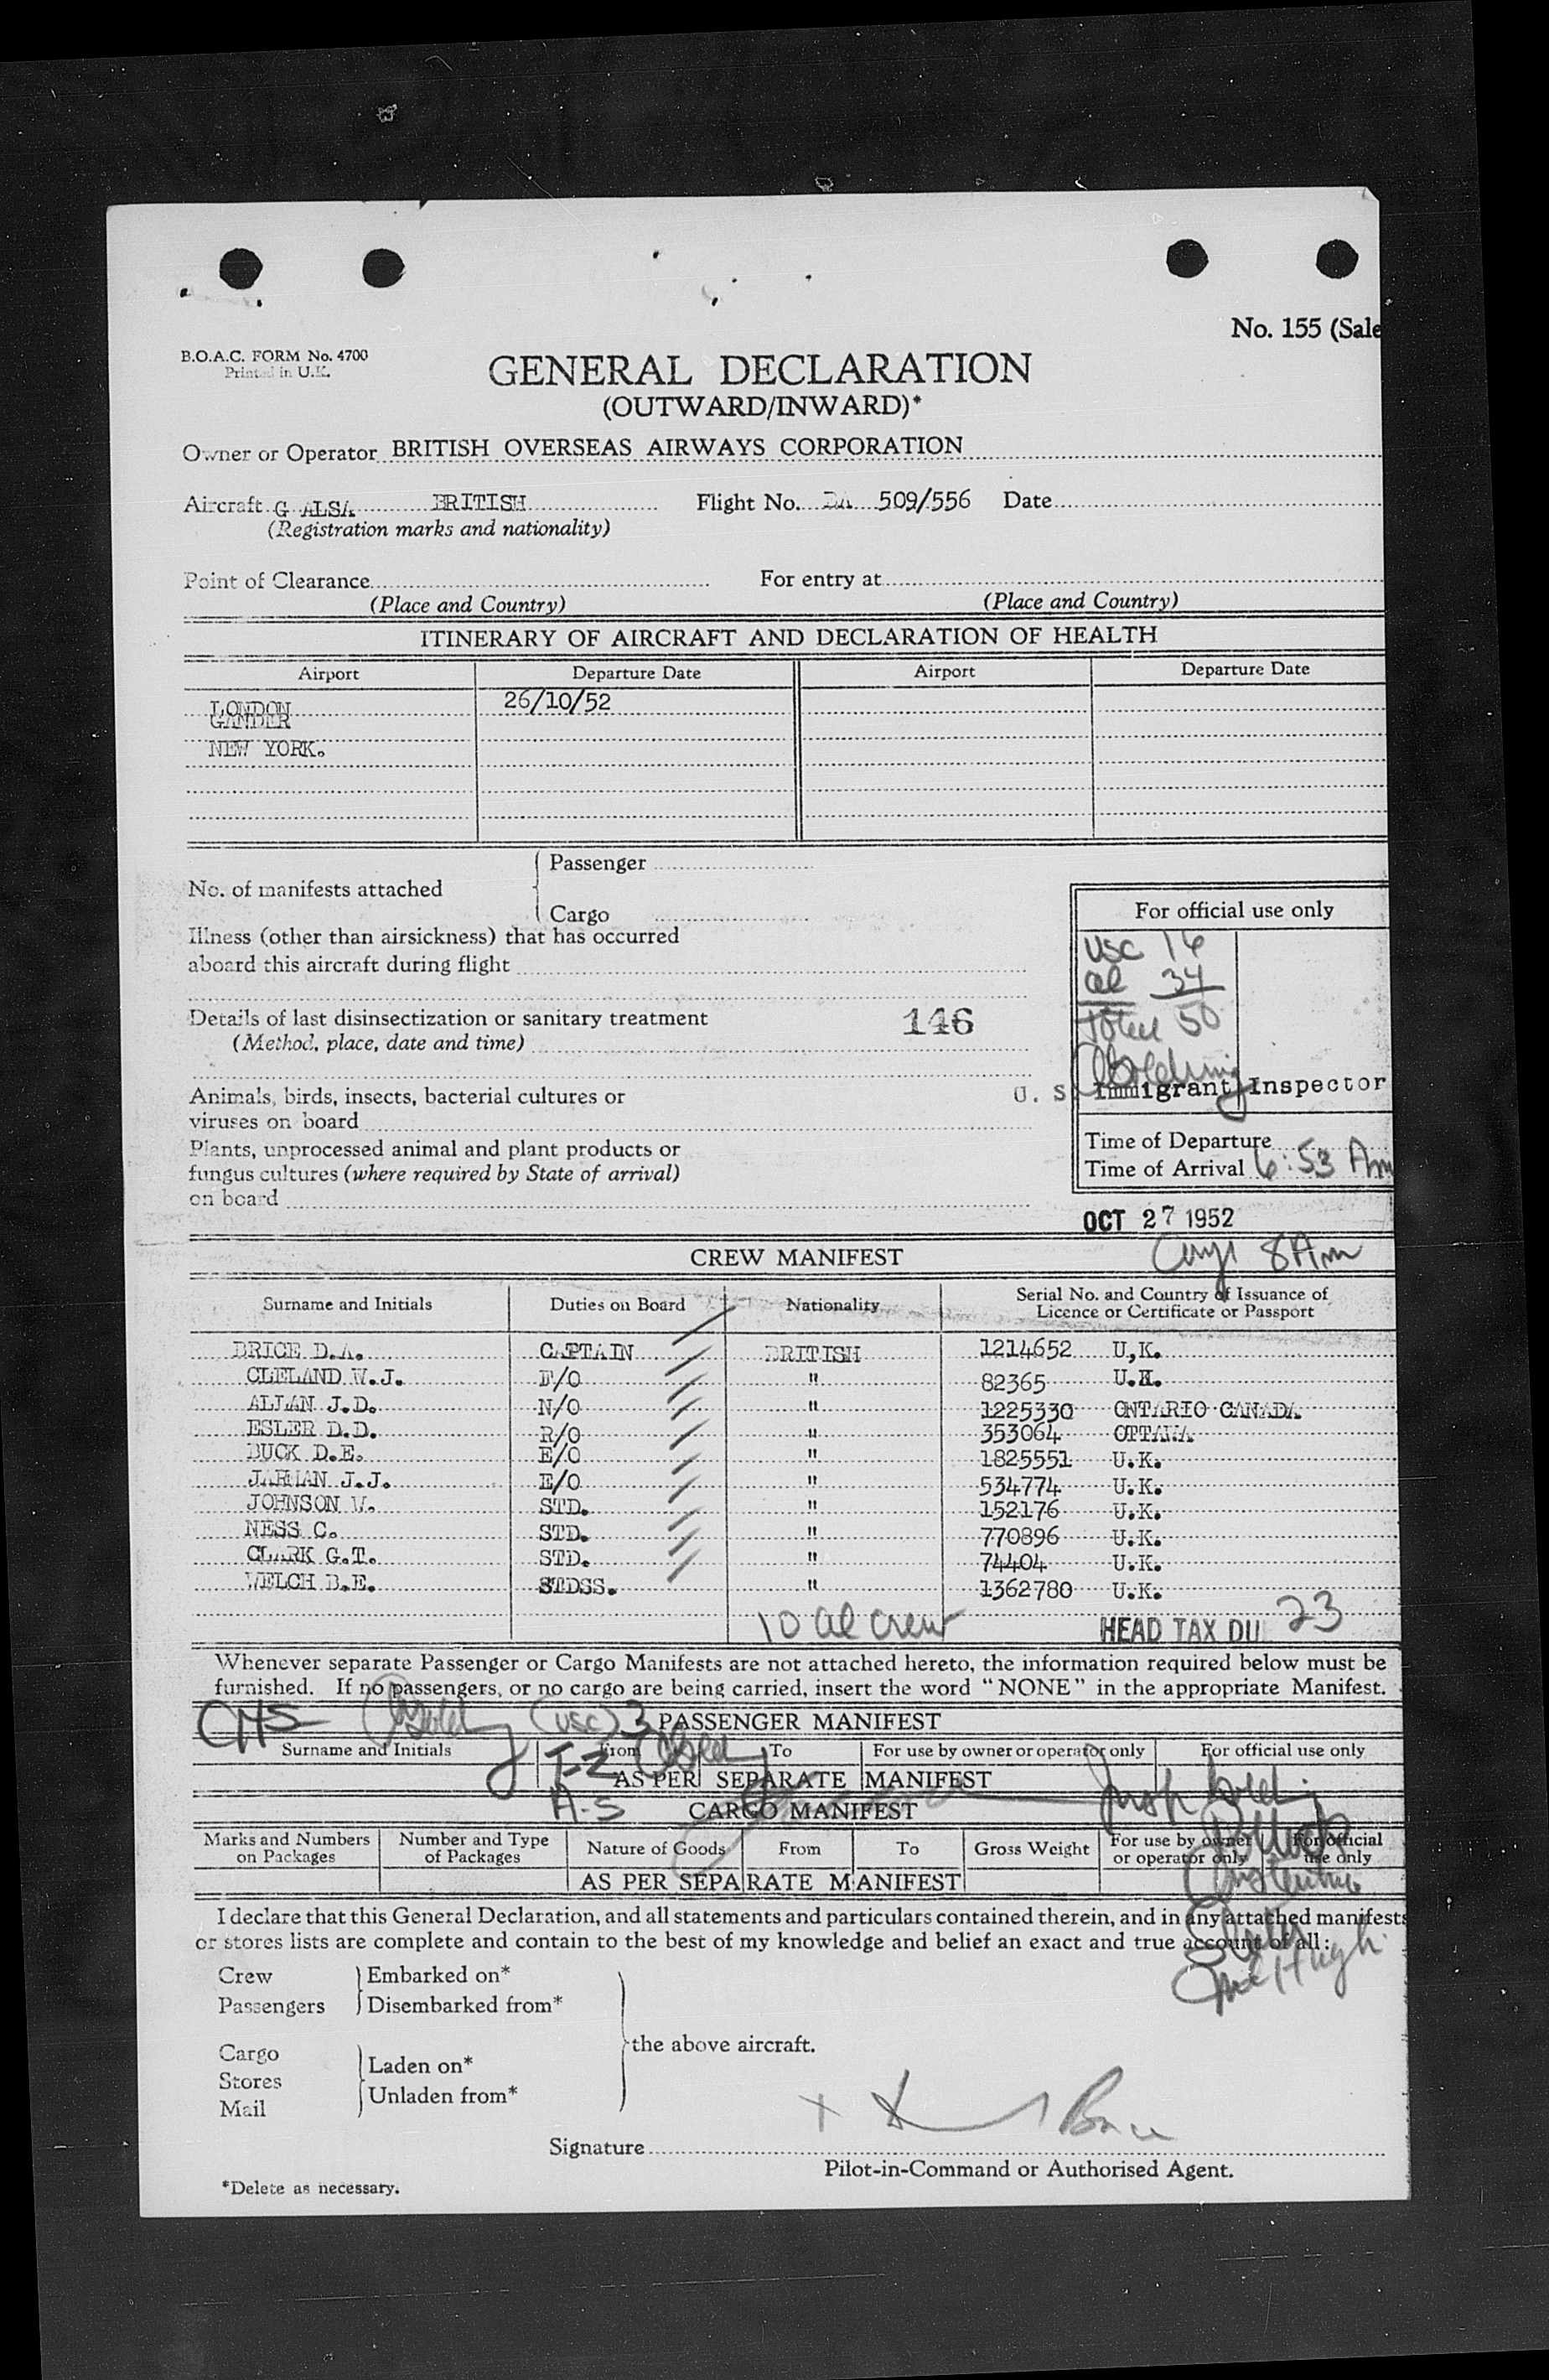 No. 155 (Sale
B.O.A.C. FORM No. 4700
Printed in U.K.
GENERAL DECLARATION
(OUTWARD/INWARD)*
Owner or Operator BRITISH OVERSEAS AIRWAYS CORPORATION
Aircraft G ALSA BRITISH Flight No. BA 509/556 Date
(Registration marks and nationality)
Point of Clearance For entry at
(Place and Country) (Place and Country)
ITINERARY OF AIRCRAFT AND DECLARATION OF HEALTH
Airport Departure Date Airport Departure Date
LONDON 26/10/52
GANDER
NEW YORK.
Passenger
No. of manifests attached
Cargo
For official use only
Illness (other than airsickness) that has occurred
aboard this aircraft during flight
USC 16
al 34
Total 50
Details of last disinsectization or sanitary treatment 146
(Method, place, date and time)
Animals, birds, insects, bacterial cultures or U. S. Immigrant Inspector
viruses on board
Plants, unprocessed animal and plant products or Time of Departure
fungus cultures (where required by State of arrival) Time of Arrival 6:53 Am
on board
OCT 27 1952
8 Am
CREW MANIFEST
Surname and Initials Duties on Board Nationality Serial No. and Country of Issuance of
Licence or Certificate or Passport
BRICE D.A. CAPTAIN BRITISH 1214652 U,K.
CLELAND W.J. F/O " 82365 U.K.
ALLAN J.D. N/O " 1225330 ONTARIO CANADA
ESLER D.D. R/O " 353064 OTTAWA
BUCK D.E. E/O " 1825551 U.K.
JARMAN J.J. E/O " 534774 U.K.
JOHNSON W. STD. " 152176 U.K.
NESS C. STD. " 770896 U.K.
CLARK G.T. STD. " 74404 U.K.
WELCH B.E. STDSS. " 1362780 U.K.
10 al crew HEAD TAX DU 23
Whenever separate Passenger or Cargo Manifests are not attached hereto, the information required below must be
furnished. If no passengers, or no cargo are being carried, insert the word "NONE" in the appropriate Manifest.
(USC) 3 PASSENGER MANIFEST
Surname and Initials From To For use by owner or operator only For official use only
T-2
AS PER SEPARATE MANIFEST
A-5 CARGO MANIFEST
Marks and Numbers on Packages Number and Type of Packages Nature of Goods From To Gross Weight For use by owner or operator only For official use only
AS PER SEPARATE MANIFEST
I declare that this General Declaration, and all statements and particulars contained therein, and in any attached manifests
or stores lists are complete and contain to the best of my knowledge and belief an exact and true account of all:
McHugh
Crew Embarked on*
Passengers Disembarked from*
the above aircraft.
Cargo
Stores Laden on*
Mail Unladen from*
Signature
Pilot-in-Command or Authorised Agent.
*Delete as necessary.